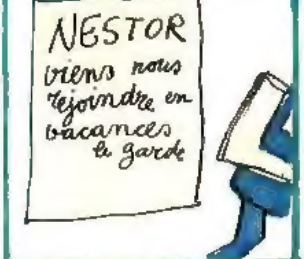 NESTOR
viens nous
rejoindre en
vacances
le garde